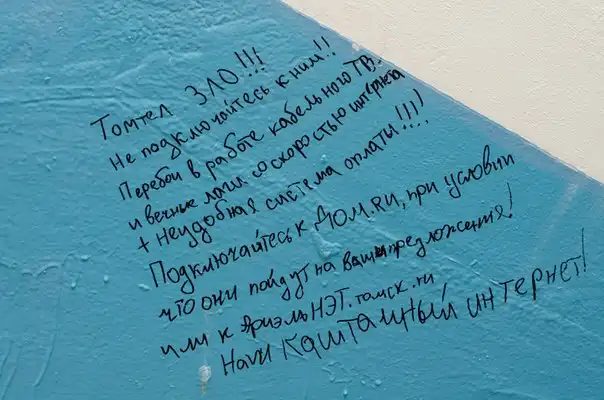 Томтел ЗЛО!!!
Не подключайтесь к ним!!
Перебои в работе кабельного ТВ.
и вечные лаги со скоростью интернета
+ Неудобная система оплаты!!!!
Подключайтесь к Дом.RU, при условии
что они пойдут на ваши предложения!
или к АриэльНЭТ.томск.ru
Наш каштачный интернет!